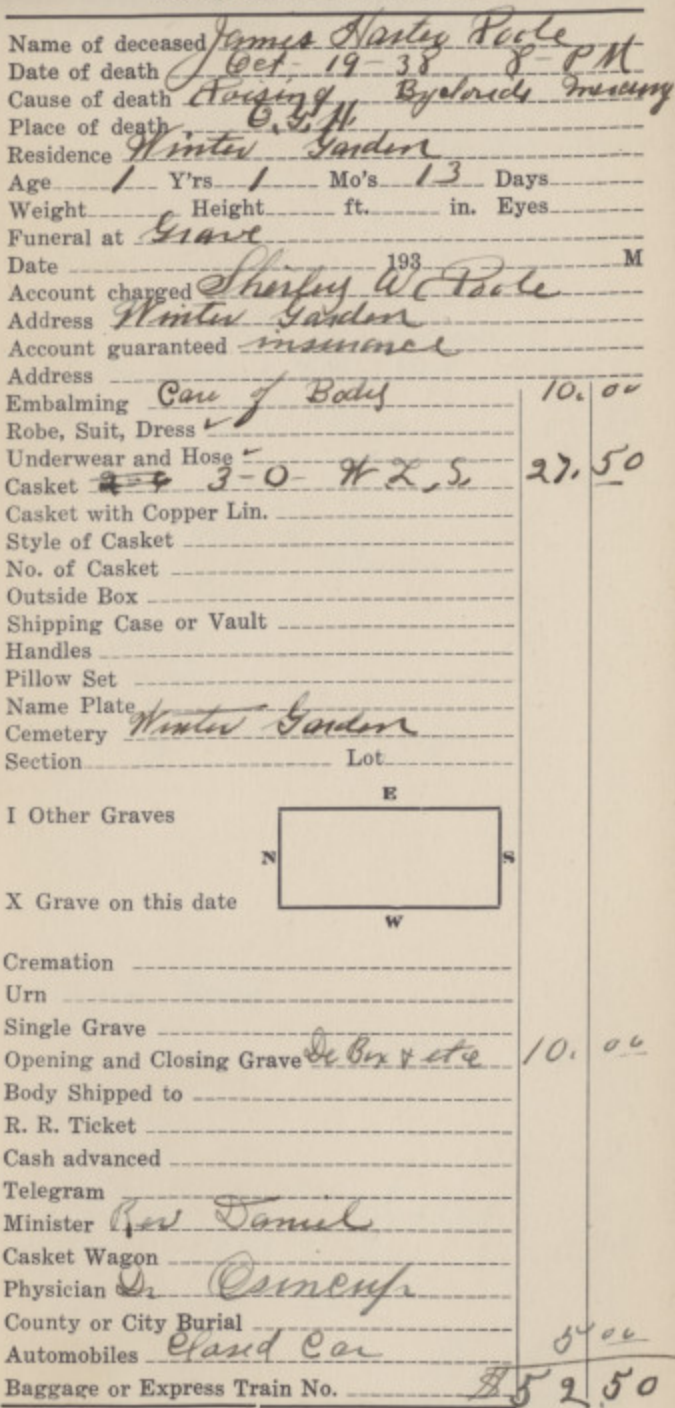 Name of deceased James Harter Poole
Date of death Oct- 19-38 8- PM
Cause of death Poising Bycloride Mercury
Place of death O.G.H.
Residence Winter Garden
Age 1 Y'rs 1 Mo's 13 Days
Weight Height ft. in. Eyes
Funeral at Grave
Date 193 M
Account charged Sherley W Poole
Address Winter Garden
Account guaranteed insurance
Address
Embalming Care of Body 10. 00
Robe, Suit, Dress ✓
Underwear and Hose ✓
Casket 3-0- W Z, S, 27. 50
Casket with Copper Lin.
Style of Casket
No. of Casket
Outside Box
Shipping Case or Vault
Handles
Pillow Set
Name Plate
Cemetery Winter Garden
Section Lot
E
I Other Graves
N S
X Grave on this date
W
Cremation
Urn
Single Grave
Opening and Closing Grave Box & etc 10. 00
Body Shipped to
R. R. Ticket
Cash advanced
Telegram
Minister Rev Daniel
Casket Wagon
Physician Dr Osincup
County or City Burial
Automobiles Closed Car 5 00
Baggage or Express Train No. $52 50